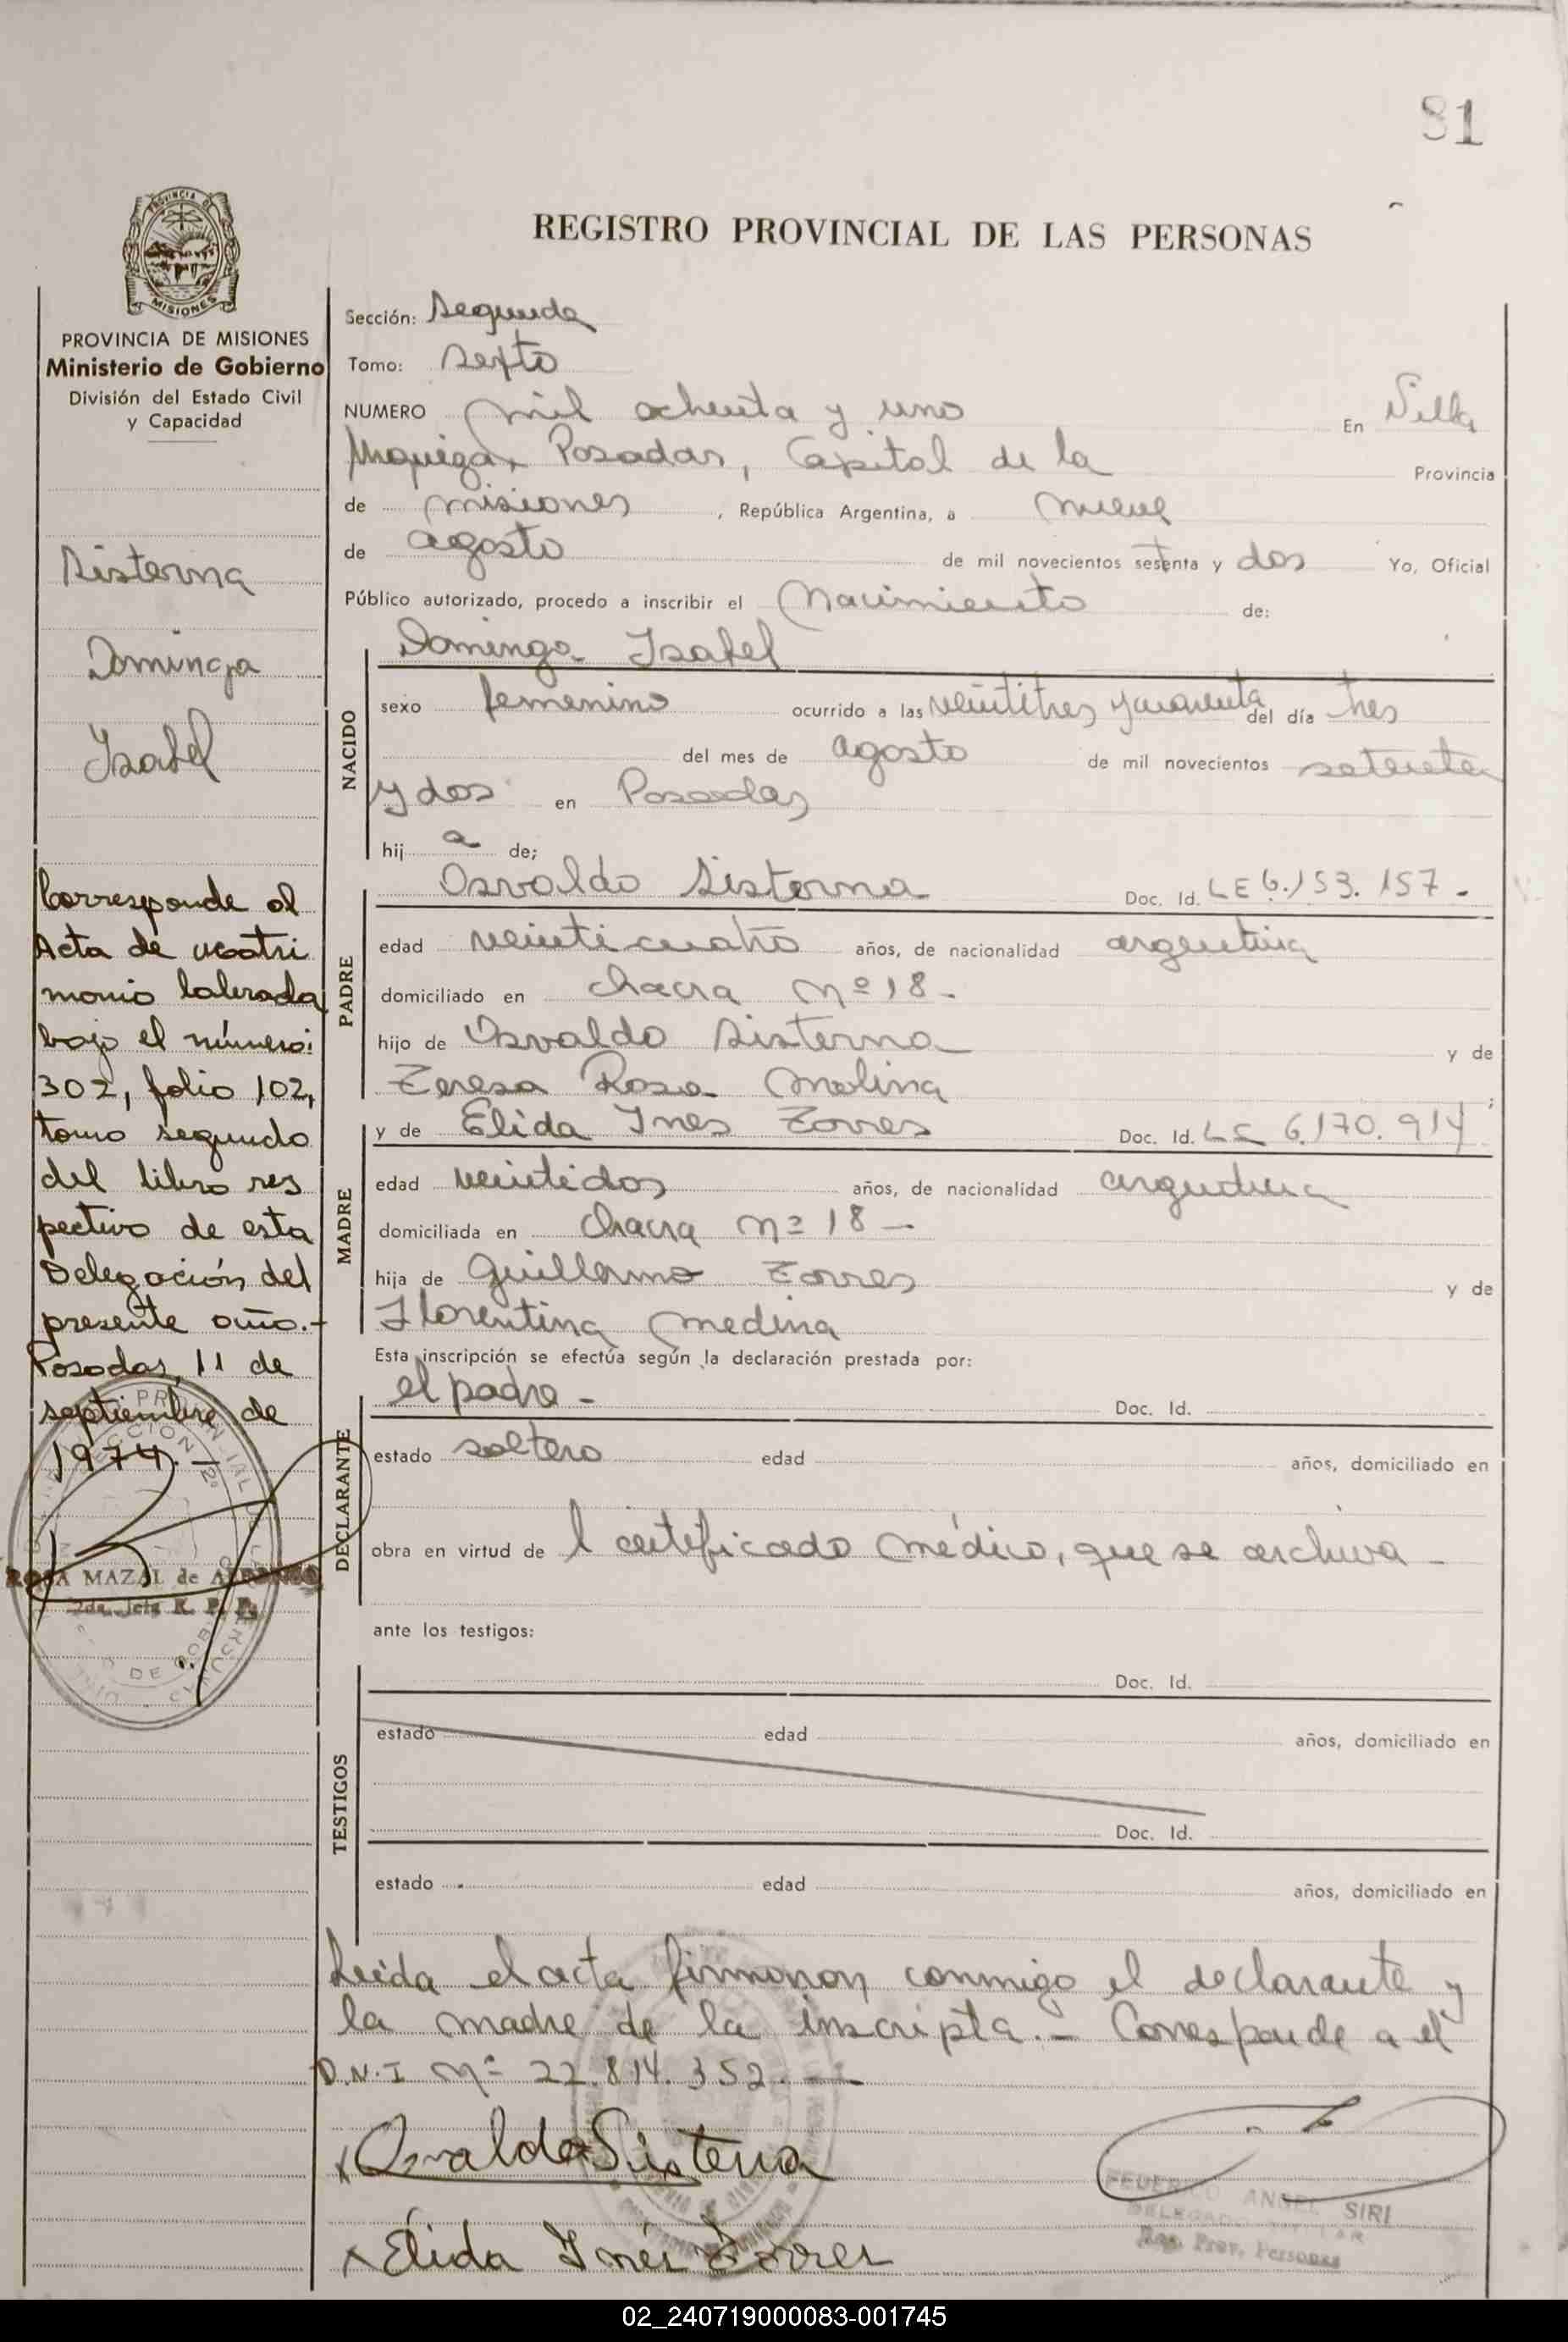 81
REGISTRO PROVINCIAL DE LAS PERSONAS
PROVINCIA DE MISIONES
Ministerio de Gobierno
División del Estado Civil
y Capacidad
Sisterna
Dominga
Isabel
Corresponde al
Acta de matri
monio labrada
bajo el número:
302, folio 102,
tomo segundo
del libro res
pectivo de esta
Delegación del
presente año.-
Posadas, 11 de
septiembre de
1974.-
ROSA MAZAL de
Sección: Segunda
Tomo: Sexto
NUMERO mil ochenta y uno En Villa
Urquiza, Posadas, Capital de la Provincia
de misiones, República Argentina, a nueve
de agosto de mil novecientos setenta y dos Yo, Oficial
Público autorizado, procedo a inscribir el Nacimiento de:
NACIDO
Dominga Isabel
sexo femenino ocurrido a las veintitres y cuarenta del día tres
del mes de agosto de mil novecientos setenta
y dos en Posadas
hij a de;
PADRE
Osvaldo Sisterna Doc. Id. LE 6.153.157-
edad veinticuatro años, de nacionalidad argentina
domiciliado en chacra Nº 18-
hijo de Osvaldo Sisterna y de
Teresa Rosa Molina;
MADRE
y de Elida Ines Torres Doc. Id. LC 6.170.914
edad veintidos años, de nacionalidad argentina
domiciliada en Chacra Nº 18-
hija de Guillermo Torres y de
Florentina Medina
Esta inscripción se efectúa según la declaración prestada por:
DECLARANTE
el padre- Doc. Id.
estado soltero edad años, domiciliado en
obra en virtud de l certificado médico, que se archiva-
ante los testigos:
TESTIGOS
Doc. Id.
estado edad años, domiciliado en
Doc. Id.
estado edad años, domiciliado en
Leida el acta firmaron conmigo el declarante y
la madre de la inscripta.- Corresponde a el
D.N.I Nº 22.814.352.-
Osvaldo Sisterna
Elida Inés Torres
FEDERICO ANGEL SIRI
DELEGADO TITULAR
Reg. Prov. Personas
02_240719000083-001745